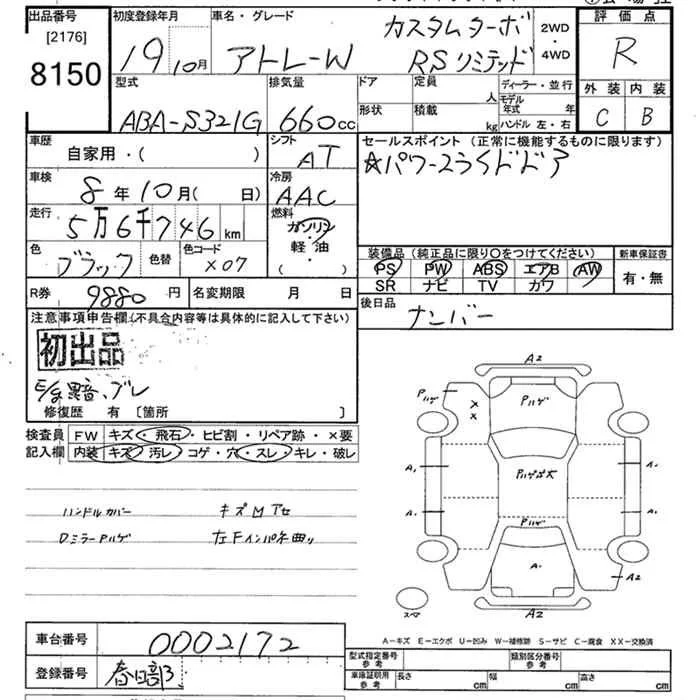 出品番号 初度登録年月 車名・グレード カスタムターボ 2WD・4WD 評価点
[2176] 19 10月 アトレーW RSリミテッド R
8150
型式 排気量 ドア 定員 人 ディーラー・並行 外装 内装
ABA-S321G 660cc 形状 積載 kg モデル年式 年 ハンドル 左・右 C B
車歴 自家用・( ) シフト AT セールスポイント(正常に機能するものに限ります)
☆パワースライドドア
車検 8年10月( 日) 冷房 AAC
走行 5万6千746km 燃料 ガソリン
軽油
( )
色 ブラック 色替 色コード X07
装備品(純正品に限り○をつけてください) 新車保証書
PS PW ABS エアB AW 有・無
SR ナビ TV カワ
R券 9880円 名変期限 月 日 後日品 ナンバー
注意事項申告欄(不具合内容等は具体的に記入して下さい)
初出品
修復歴 有 [箇所 ]
検査員 FW キズ・飛石・ヒビ割・リペア跡・×要
記入欄 内装 キズ・汚レ・コゲ・穴・スレ・キレ・破レ
ハンドルカバー
Dミラーハゲ 左Fインパネ曲リ
A2
ハゲ ハゲ
A1 A1
A1 ハゲ A1
A1
A2
A2
A-キズ E-エクボ U-凹み W-補修跡 S-サビ C-腐食 XX-交換済
車台番号 0002172 型式指定番号 参考 類別区分番号 参考
登録番号 春日部 車庫証明用 参考 長さ cm 幅 cm 高さ cm